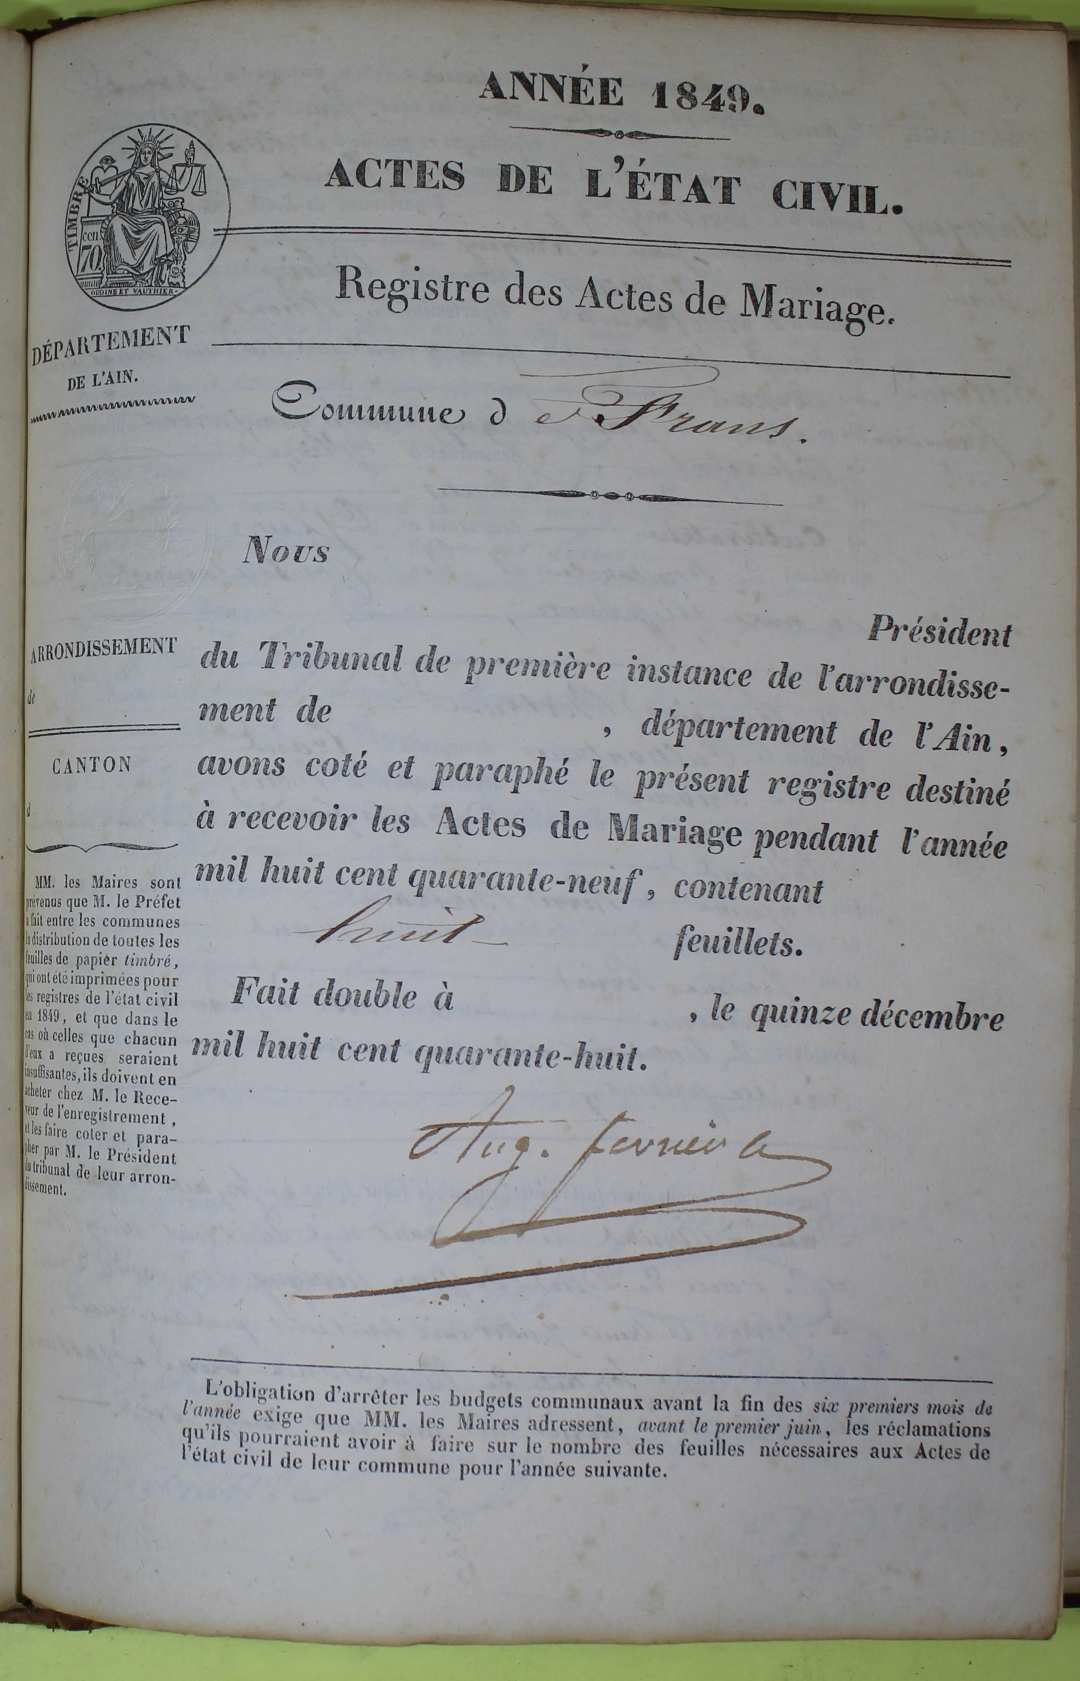 ANNÉE 1849.
ACTES DE L'ÉTAT CIVIL.
TIMBRE
cen
70
OUDINÉ ET VAUTHIER
Registre des Actes de Mariage.
DÉPARTEMENT
DE L'AIN.
Commune de Frans.
Nous
Président
du Tribunal de première instance de l'arrondisse-
ment de , département de l'Ain,
avons coté et paraphé le présent registre destiné
à recevoir les Actes de Mariage pendant l'année
mil huit cent quarante-neuf, contenant
huit feuillets.
Fait double à , le quinze décembre
mil huit cent quarante-huit.
Aug.
ARRONDISSEMENT
de
CANTON
d
MM. les Maires sont
prévenus que M. le Préfet
a fait entre les communes
la distribution de toutes les
feuilles de papier timbré,
qui ont été imprimées pour
les registres de l'état civil
en 1849, et que dans le
cas où celles que chacun
d'eux a reçues seraient
insuffisantes, ils doivent en
acheter chez M. le Rece-
veur de l'enregistrement,
et les faire coter et para-
pher par M. le Président
du tribunal de leur arron-
dissement.
L'obligation d'arrêter les budgets communaux avant la fin des six premiers mois de
l'année exige que MM. les Maires adressent, avant le premier juin, les réclamations
qu'ils pourraient avoir à faire sur le nombre des feuilles nécessaires aux Actes de
l'état civil de leur commune pour l'année suivante.